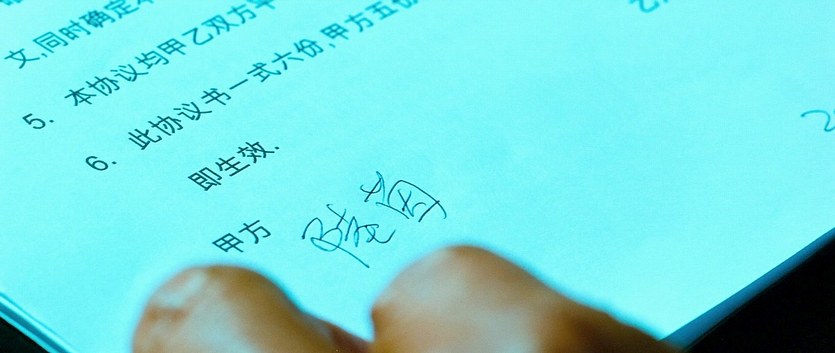 文,同时确定
5. 本协议均甲乙双方
6. 此协议书一式六份,甲方五份
即生效.
甲方